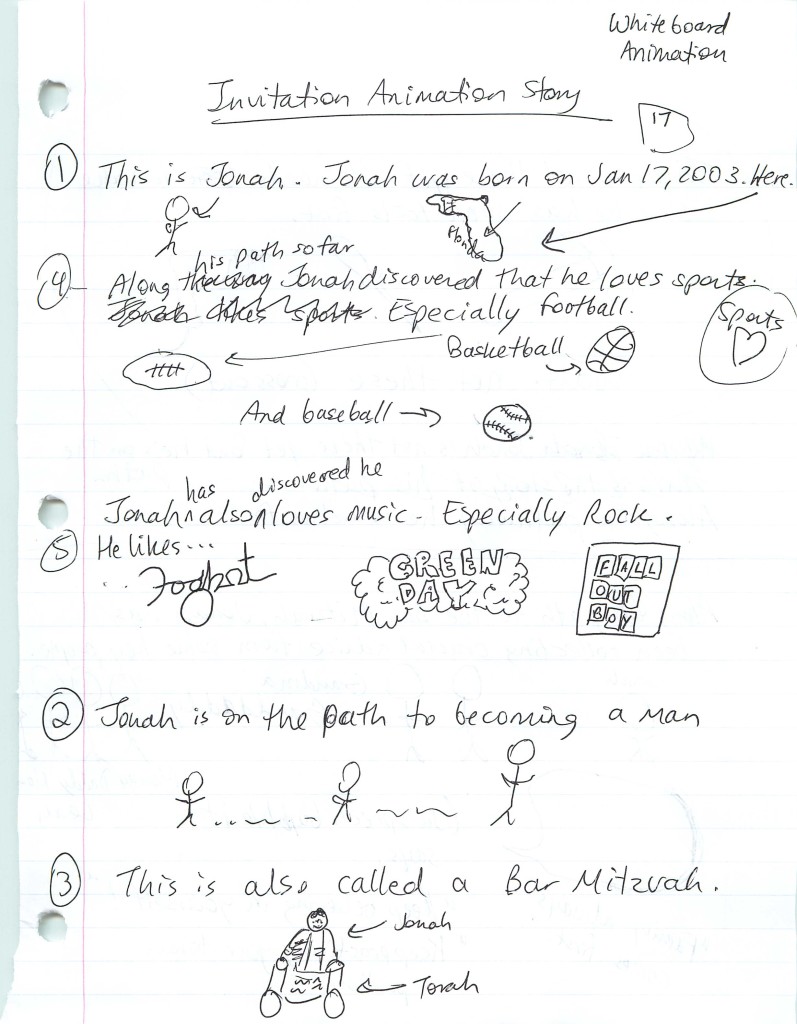 Whiteboard
Animation
Invitation Animation Story
17
① This is Jonah. Jonah was born on Jan 17, 2003. Here.
Florida
his path so far
④ Along the way Jonah discovered that he loves sports.
Jonah likes sports. Especially football.
Sports
Basketball
And baseball
has discovered he
Jonah also loves music. Especially Rock.
⑤ He likes...
.. Foghat
GREEN
DAY
FALL
OUT
BOY
② Jonah is on the path to becoming a man
③ This is also called a Bar Mitzvah.
Jonah
Torah